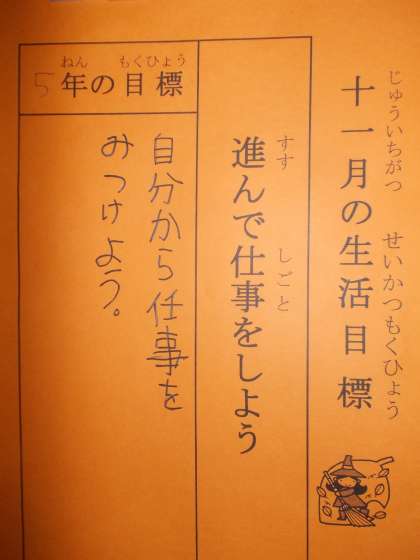 じゅういちがつ せいかつもくひょう
十一月の生活目標
すす しごと
進んで仕事をしよう
ねん もくひょう
5年の目標
自分から仕事を
みつけよう。